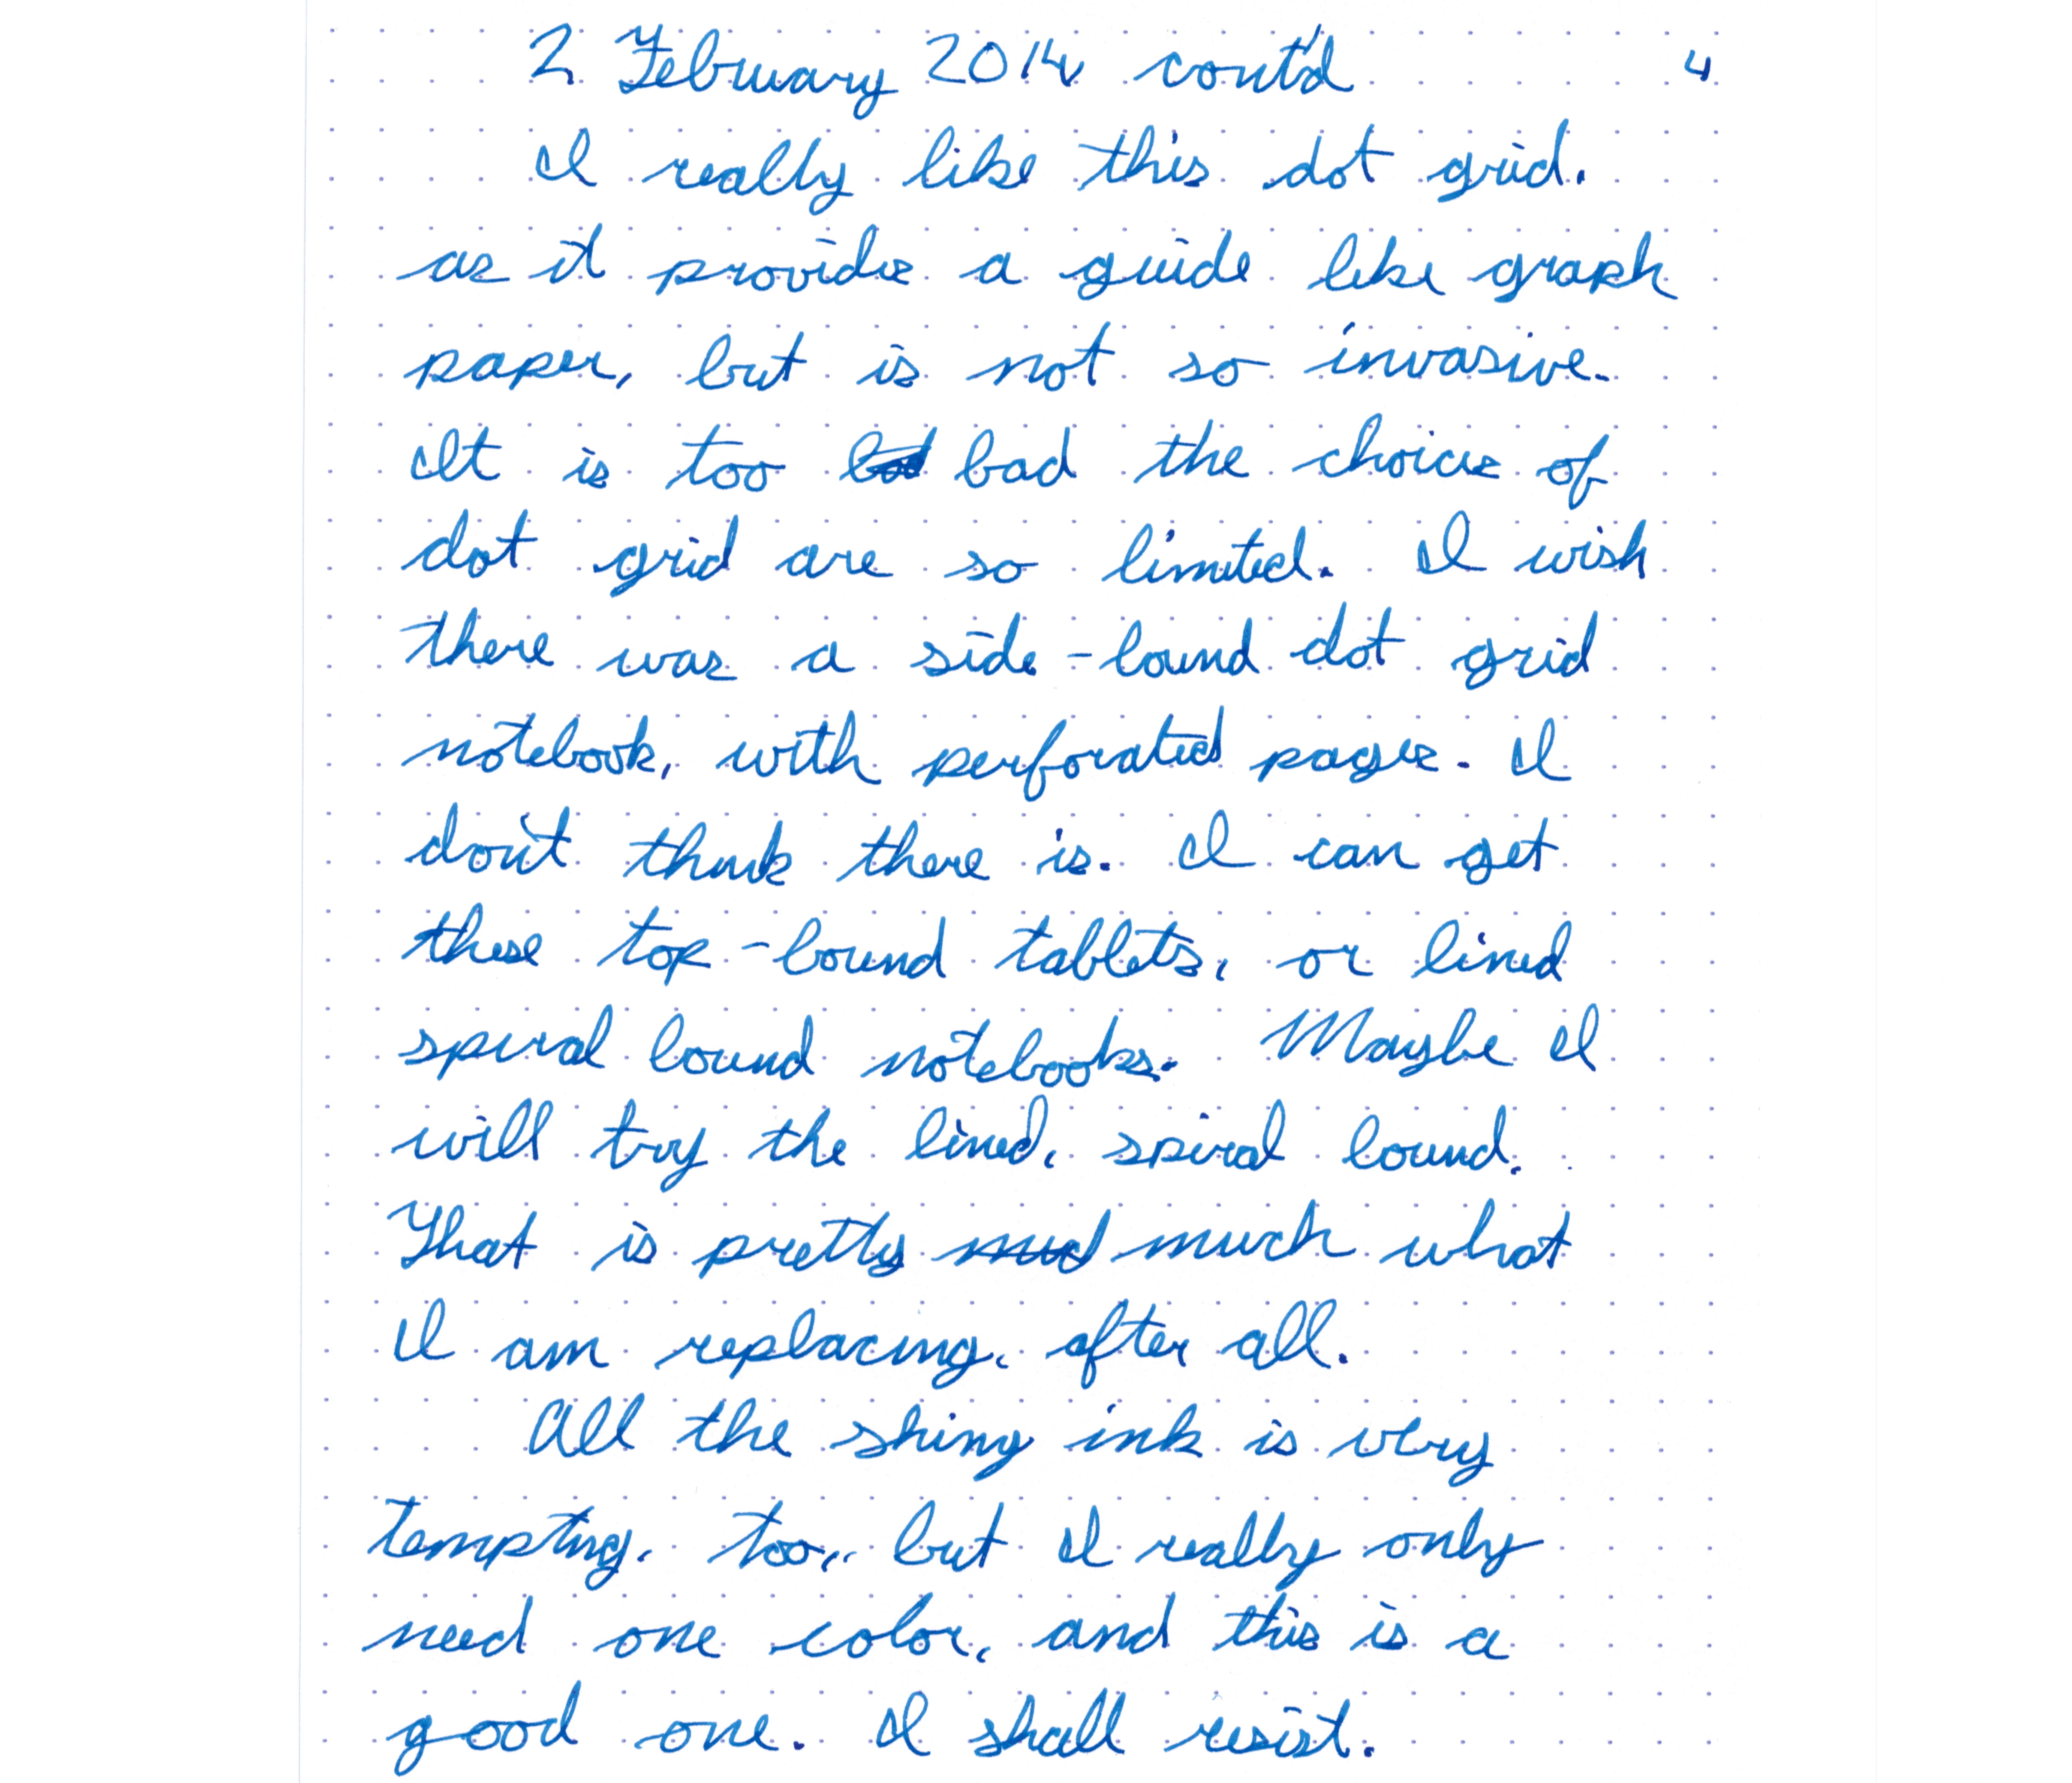 2 February 2014 cont'd 4
I really like this dot grid.
as it provides a guide like graph
paper, but is not so invasive.
It is too bad the choices of
dot grid are so limited. I wish
there was a side-bound dot grid
notebook, with perforated pages. I
don't think there is. I can get
these top-bound tablets, or lined
spiral bound notebooks. Maybe I
will try the lined, spiral bound.
That is pretty much what
I am replacing, after all.
All the shiny ink is very
tempting, too, but I really only
need one color, and this is a
good one. I shall resist.